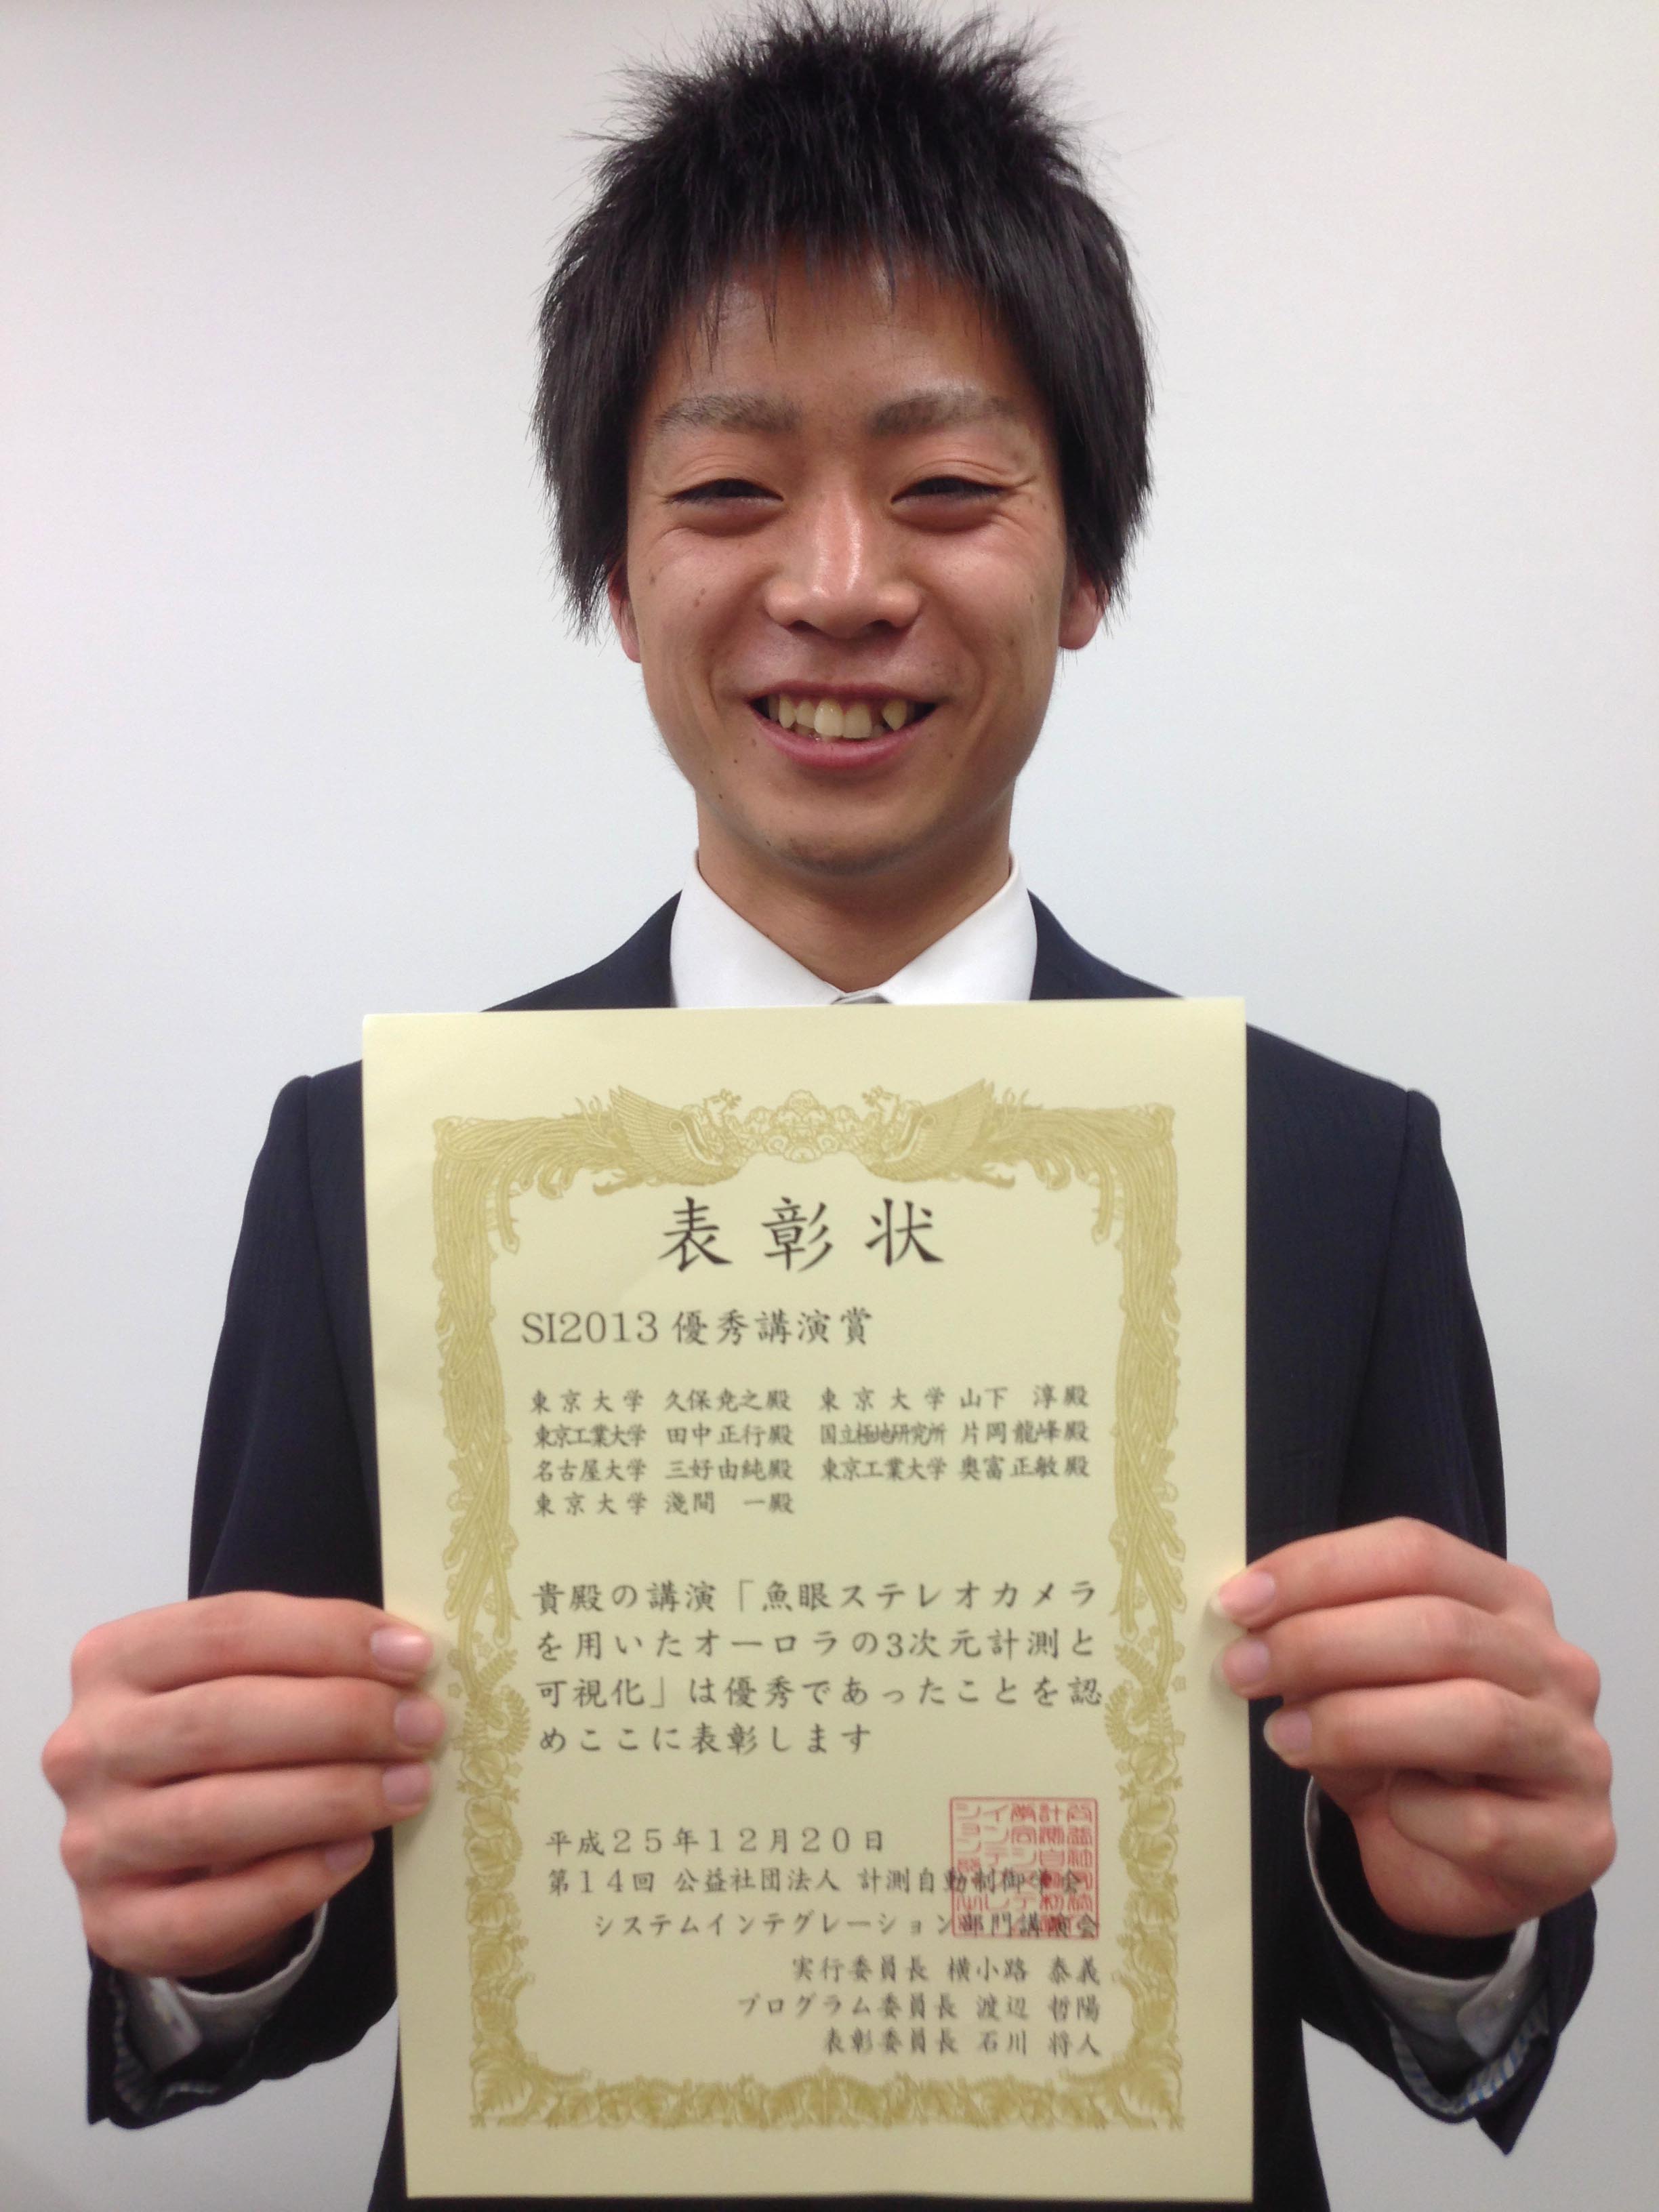 表彰状
SI2013 優秀講演賞
東京大学 久保尭之殿 東京大学 山下 淳殿
東京工業大学 田中正行殿 国立極地研究所 片岡龍峰殿
名古屋大学 三好由純殿 東京工業大学 奥富正敏殿
東京大学 淺間 一殿
貴殿の講演「魚眼ステレオカメラ
を用いたオーロラの3次元計測と
可視化」は優秀であったことを認
めここに表彰します
平成25年12月20日
第14回 公益社団法人 計測自動制御学会
システムインテグレーション部門講演会
実行委員長 横小路 泰義
プログラム委員長 渡辺 哲陽
表彰委員長 石川 将人